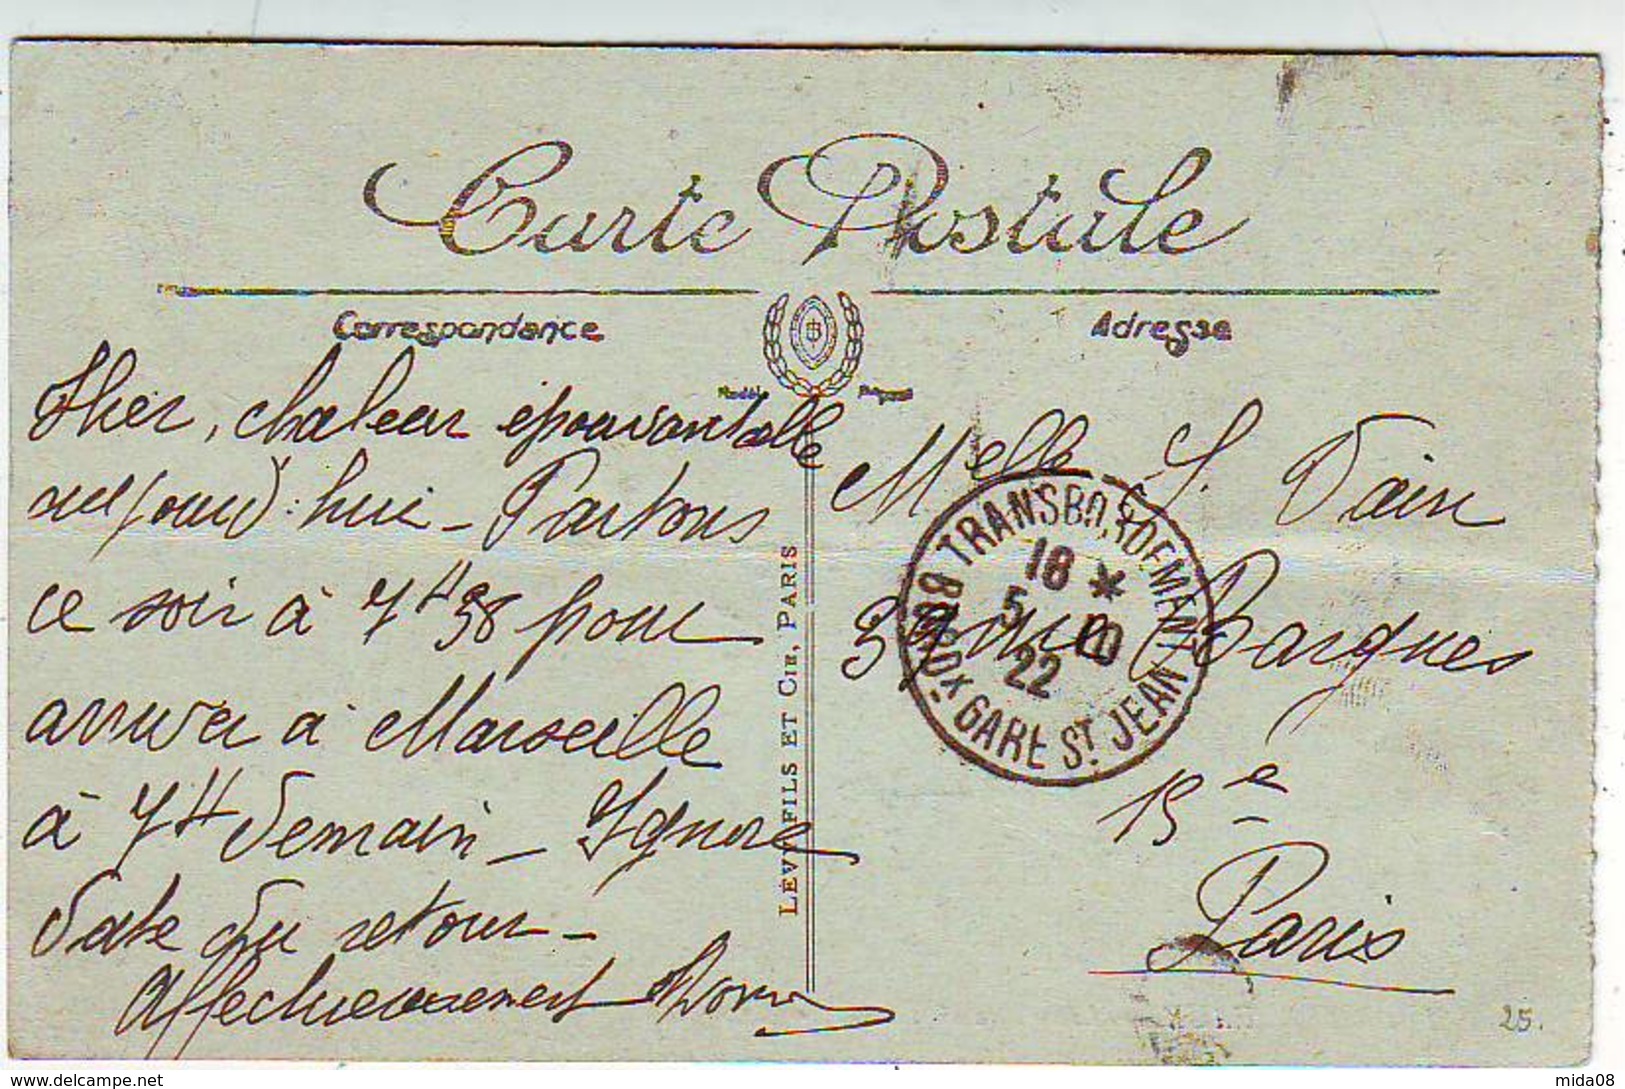 Carte Postale
Correspondance
Adresse
Hier, chaleur épouvantable
aujourd'hui - Partons
ce soir à 7H38 pour
arriver à Marseille
à 7H demain - Ignore
date du retour -
Affectueusement
LÉVY FILS ET CIE, PARIS
Melle S. Vain
rue Bargues
15e
Paris
BORDx GARE St JEAN TRANSBORDEMENT
18 *
5 10
22
25.
delcampe.net
mida08